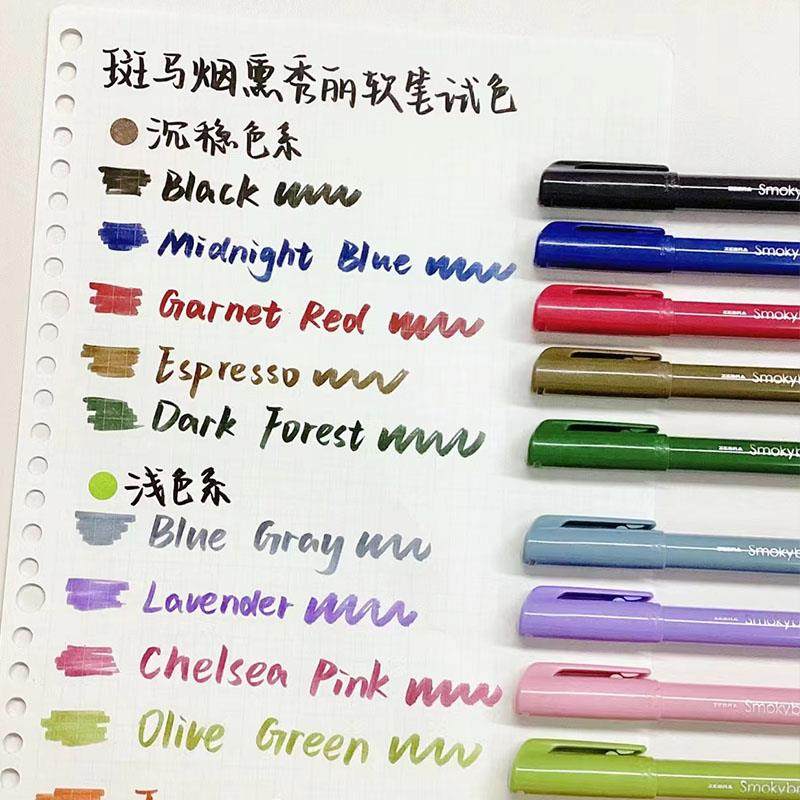 斑马烟熏秀丽软笔试色
沉稳色系
Black
Midnight Blue
Garnet Red
Espresso
Dark Forest
浅色系
Blue Gray
Lavender
Chelsea Pink
Olive Green
ZEBRA Smoky
ZEBRA Smoky
ZEBRA Smoky
ZEBRA Smoky
ZEBRA Smokyb
ZEBRA Smokyb
ZEBRA Smokyb
ZEBRA Smokyb
ZEBRA Smokybr